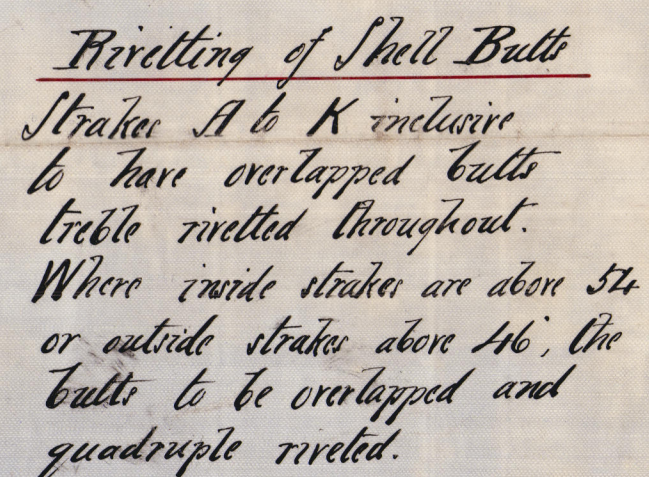 Rivetting of Shell Butts
Strakes A to K inclusive
to have overlapped butts
treble rivetted throughout.
Where inside strakes are above 54
or outside strakes above 46, the
butts to be overlapped and
quadruple riveted.